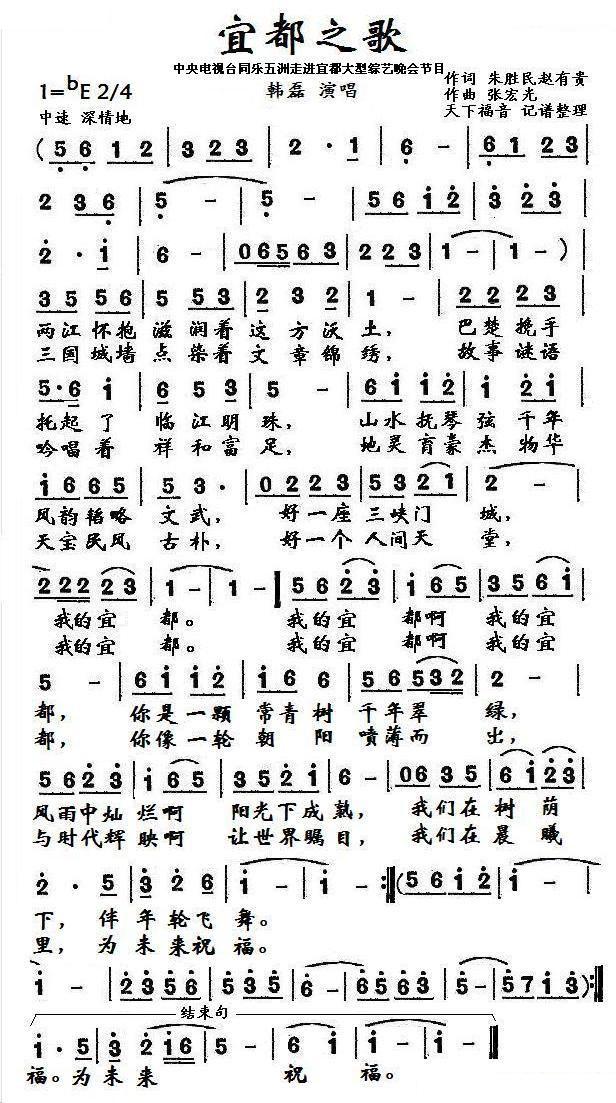 宜都之歌
中央电视台同乐五洲走进宜都大型综艺晚会节目
1=bE 2/4
韩磊 演唱
作词 朱胜民赵有贵
作曲 张宏光
中速 深情地
天下福音 记谱整理
( 5 6 1 2 | 3 2 3 | 2 · 1 | 6 - | 6 1 2 3 |
2 3 6 | 5 - | 5 - | 5 6 1 2 | 3 2 3 |
2 · 1 | 6 - | 0 6 5 6 3 | 2 2 3 | 1 - | 1 - ) |
3 5 5 6 | 5 5 3 | 2 3 2 | 1 - | 2 2 2 3 |
两江怀抱 滋润着 这方沃土， 巴楚挽手
三国城墙 点染着 文章锦绣， 故事谜语
5 · 6 1 | 6 5 3 | 5 - | 6 1 1 2 | 1 2 1 |
托起了 临江明珠， 山水抚琴弦千年
吟唱着 祥和富足， 地灵育豪杰物华
1 6 6 5 | 5 3 · | 0 2 2 3 | 5 3 2 1 | 2 - |
风韵韬略 文武， 好一座 三峡门 城，
天宝民风 古朴， 好一个 人间天 堂，
2 2 2 2 3 | 1 - | 1 - ‖ 5 6 2 3 | 1 6 5 | 3 5 6 1 |
我的宜 都。 我的宜 都啊 我的宜
我的宜 都。 我的宜 都啊 我的宜
5 - | 6 1 1 2 | 1 6 6 | 5 6 5 3 2 | 2 - |
都， 你是一颗 常青树 千年翠 绿，
都， 你像一轮 朝 阳 喷薄而 出，
5 6 2 3 | 1 6 5 | 3 5 2 1 | 6 - | 0 6 3 5 | 6 1 2 3 |
风雨中灿 烂啊 阳光下成熟， 我们在 树 荫
与时代辉 映啊 让世界瞩目， 我们在 晨 曦
2 · 5 | 3 2 6 | 1 - | 1 - :‖ ( 5 6 1 2 | 1 - |
下， 伴 年轮飞 舞。
里， 为 未来祝 福。
1 - | 2 3 5 6 | 5 3 5 | 6 - | 6 5 6 3 | 5 - | 5 7 1 3 ) :‖
结束句
1 · 5 | 3 2 1 6 | 5 - | 6 1 | 1 - | 1 - ‖
福。为 未 来 祝 福。